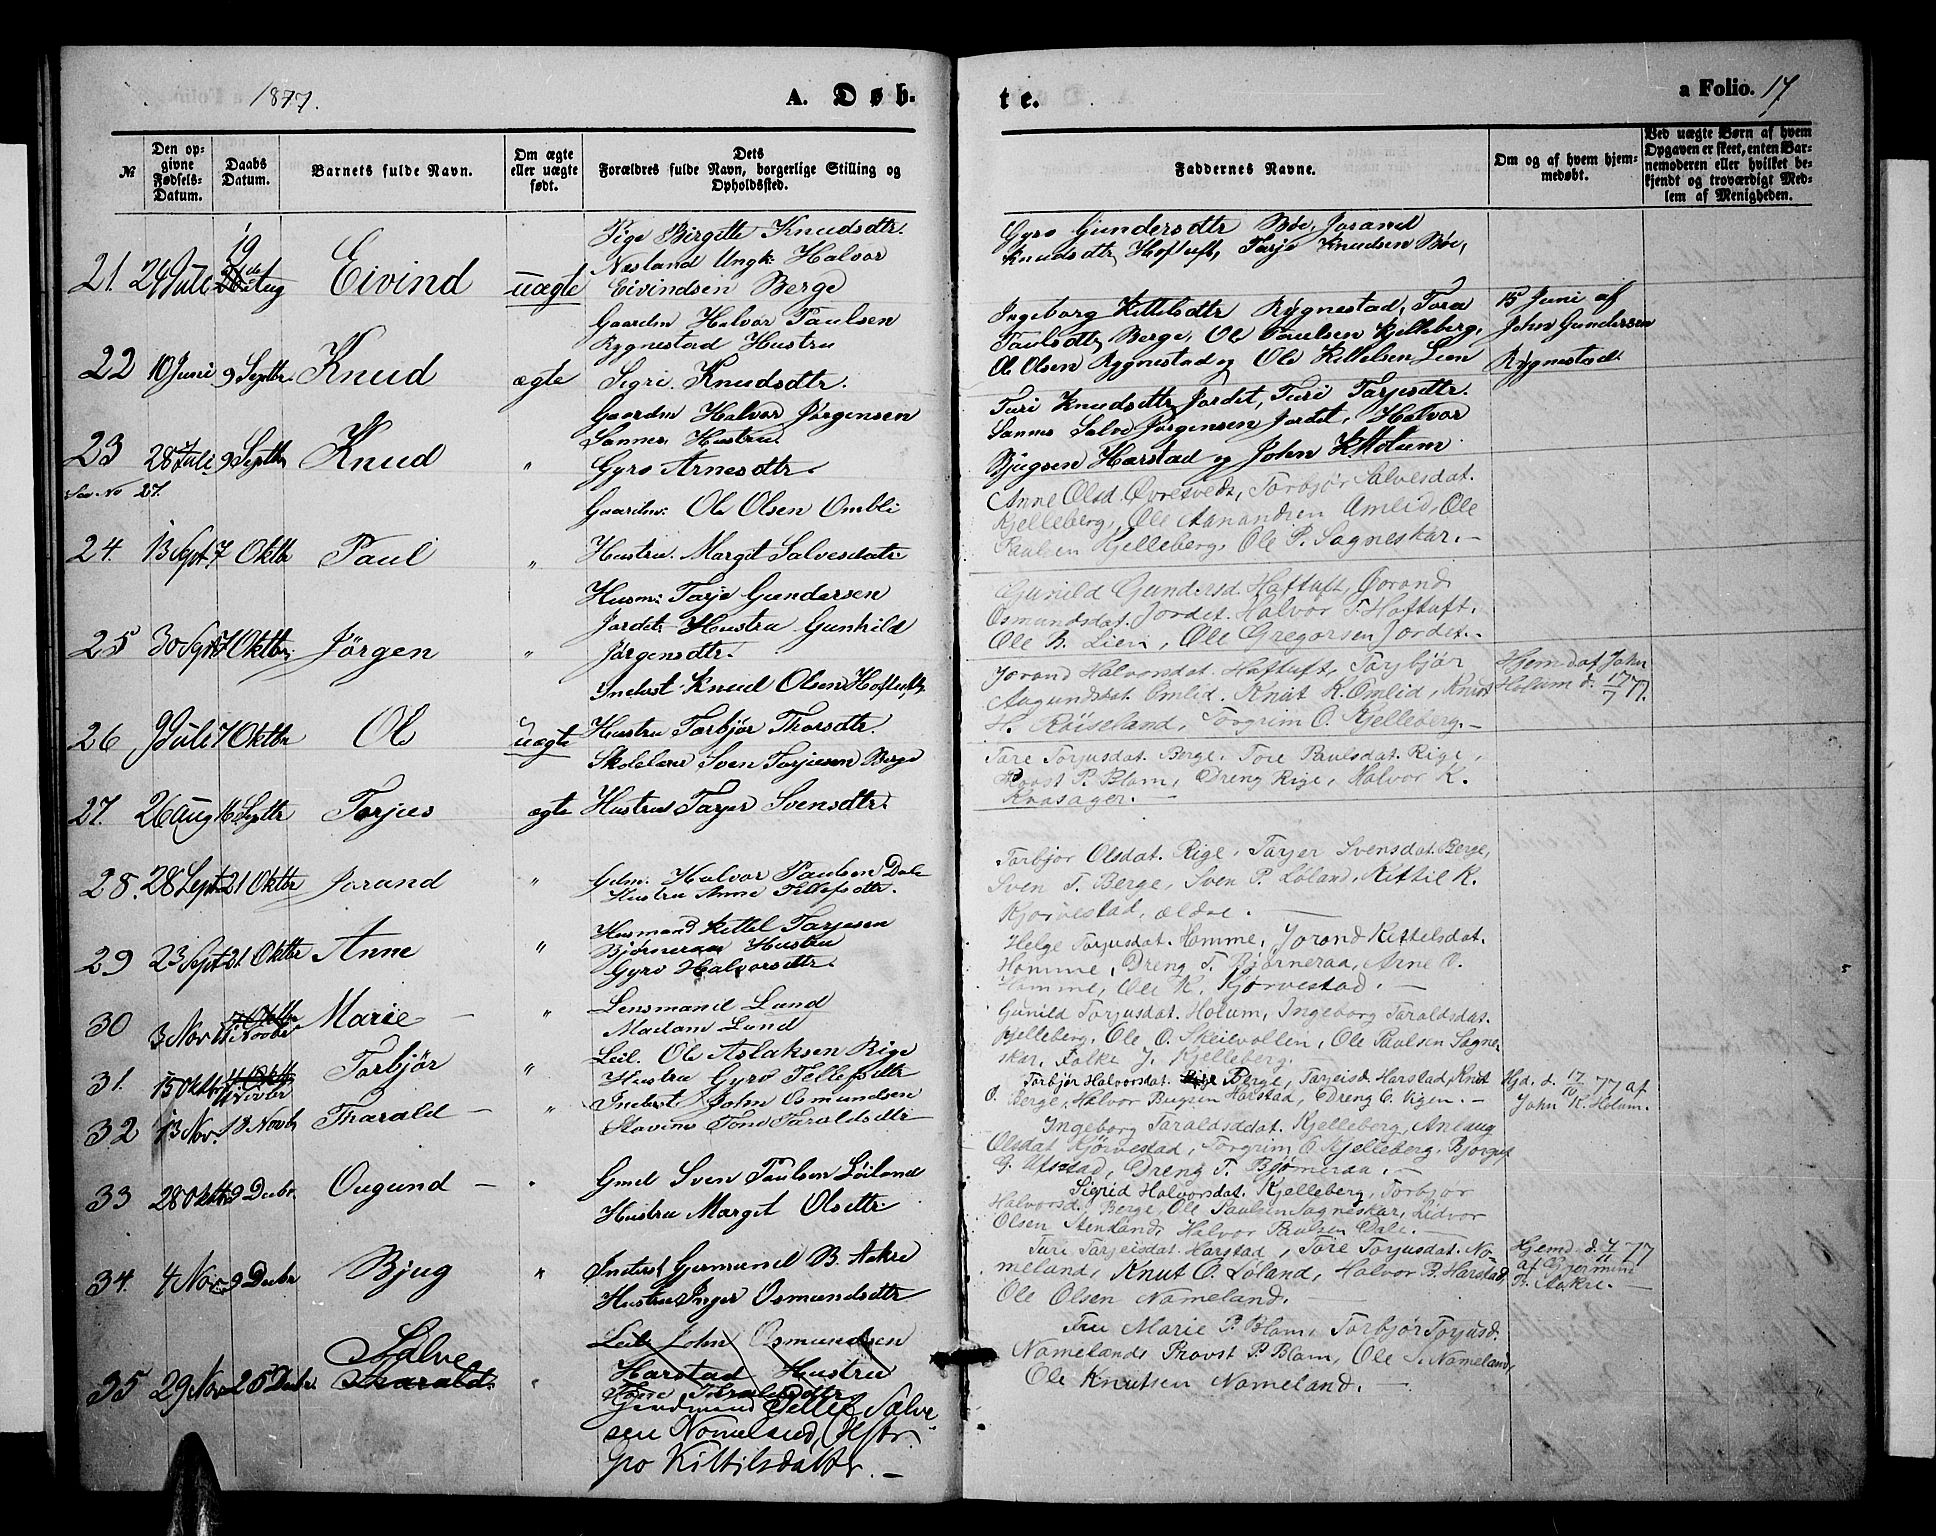 1877.
A. Døb.
№
Den opgivne Fødsels-Datum.
Daabs Datum.
Barnets fulde Navn.
Om ægte eller uægte født.
Dets Forældres fulde Navn, borgerlige Stilling og Opholdssted.
21. 24 Juli 19 Aug Eivind uægte
Pige Birgitte Knudsdtr.
Nesland Ungk: Halvor
Eivindsen Berge
22 10 Juni 9 Septbr. Knud ægte
Gaardm Halvor Paulsen
Rygnestad Hustru
Sigri Knudsdtr.
23 28 Juli 9 Septbr Knud "
Gaardm Halvor Jørgensen
Sannes Hustru
Gyro Arnesdtr.
See No 27.
24. 13 Sept. 7 Oktbr Paul "
Gaardm: Ole Olsen Ombli
Hustru. Margit Salvesdatr.
25 30 Sept 7 Oktbr. Jørgen "
Husm: Tarje Gundersen
Jordet. Hustru Gunhild
Jørgensdtr.
26 9 Juli 7 Oktbr Ole uægte
Inderst Knud Olsen Hoftuft
Hustru Torbjør Thorsdtr.
27. 26 Aug 16 Septbr Torjus ægte
Skolelærer Sven Torjusen Berge
Hustru Tarjer Svensdtr.
28. 28 Sept. 21 Oktbr Jorand "
Gdm. Halvor Paulsen Dale
Hustru Anne Tellefsdtr.
29 23 Sept 21 Oktbr Anne "
Husmand Kittel Tarjusen
Bjørneraa Hustru
Gyro Halvorsdtr.
30 3 Nov 11 Novbr Marie "
Lensmand Lund
Madam Lund
31. 15 Oktbr 11 Novbr Torbjør "
Leil. Ole Aslaksen Rige
Hustru Gyro Tellefsdtr
32 13 Nov. 18 Novb Tharald "
Inderst John Osmundsen
Tone Taraldsdtr
33 28 Oktbr 9 Decbr. Ougund "
Gmd Sven Paulsen Løiland
Hustru Margit Olsdtr
34. 4 Nov 9 Decbr Bjug "
Inderst Germund B. Aakre
Hustru Inger Osmundsdtr
35 29 Nov 26 Decbr. Salve Tharald "
Leil. John Osmundsen
Harstad Hustru
Tone Taraldsdtr
Gaardmand Tellef Salve-
sen Nomeland, Hstr.
Gro Kittilsdatter. —
te.
a Folio. 17
Faddernes Navne.
Om og af hvem hjemmedøbt.
Ved uægte Børn af hvem Opgaven er skeet, enten Barnemoderen eller hvilket bekjendt og troværdigt Medlem af Menigheden.
Gyro Gundersdtr Bøe, Jorand
Knudsdtr Hoftuft, Tarje Knudsen Bøe,
Ingeborg Kittelsdtr Rygnestad, Tora
Paulsdtr Berge, Ole Paulsen Kjelleberg,
Ole Olsen Rygnestad og Ole Kittelsen Lien
15 Juni af
John Gundersen
Rygnestad.
Turi Knudsdtr Jordet, Turi Tarjesdtr.
Sannes Salve Jørgensen Jordet, Halvor
Bjugsen Harstad og John K. Holum
Anne Olsd. Øvretveds, Torbjør Salvesdat.
Kjelleberg, Ole Aanundsen Omlid, Ole
Paulsen Kjelleberg, Ole P. Sagneskar. —
Gunild Gundersd. Haftuft, Jorand
Osmundsdat. Jordet. Halvor T. Haftuft.
Ole B. Lien, Ole Gregorsen Jordet. —
Jorand Halvorsdat. Haftuft, Torbjør
Augundsdat. Omlid. Knut K. Omlid, Knut
H. Røiseland, Torgrim O. Kjelleberg. —
Hjemd af John
Holum d. 17/7 77.
Tore Torjusdat. Berge, Tore Paulsdat. Rige,
Provst P. Blom, Dreng Rige, Halvor K.
Kvasager. —
Torbjør Olsdat. Rige, Tarjer Svensdat. Berge,
Sven T. Berge, Sven P. Løland, Kittil K.
Kjørvestad, ældre. —
Helge Torjusdat. Homme, Jorand Kittelsdat.
Homme, Dreng T. Bjørneraa, Arne O.
Homme, Ole K. Kjørvestad. —
Gunild Torjusdat. Holum, Ingeborg Taraldsdat.
Kjelleberg, Ole O. Skeivollen, Ole Paulsen Sagne-
skar, Folke J. Kjelleberg.
Torbjør Halvorsdat. Berge, Tarjeisd. Harstad, Knut
O. Berge, Halvor Bugsen Harstad, Dreng O. Vigen. —
Hjd. d. 17/10 77 af
John K. Holum.
Ingeborg Taraldsdat. Kjelleberg, Anlaug
Olsdat Kjørvestad, Torgrim O. Kjelleberg. Bjorguf
G. Utstad, Dreng T. Bjørneraa. —
Sigrid Halvorsdat. Kjelleberg, Torbjør
Halvorsd. Berge, Ole Paulsen Sagneskar, Lidvor
Olsen Stensland, Halvor Paulsen Dale. —
Turi Tarjeisdat. Harstad, Tore Torjusdat. No-
meland, Knut O. Løland, Halvor B. Harstad,
Ole Olsen Nomeland.
Hjemd. d. 4/11 77
af Gjermund
B. Aakre. —
Fru Marie P. Blom, Torbjør Torjusd.
Nomeland, Provst P. Blom, Ole S. Nomeland,
Ole Knutsen Nomeland. —